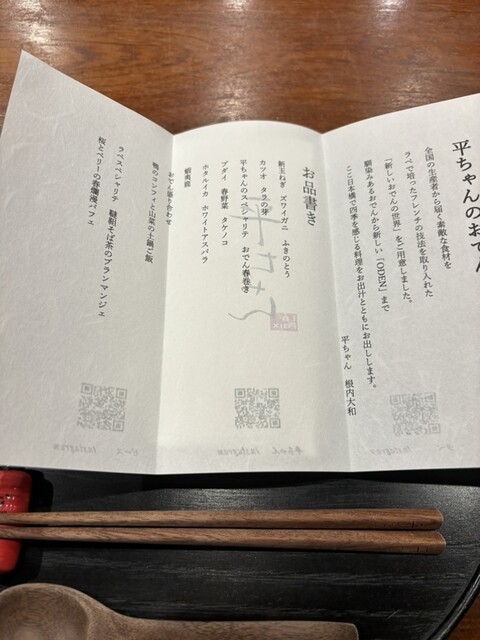 平ちゃんのおでん
全国の生産者から届く素敵な食材を
ラペで培ったフレンチの技法を取り入れた
「新しいおでんの世界」をご用意しました。
馴染みあるおでんから新しい「ODEN」まで
ここ日本橋で四季を感じる料理をお出汁とともにお出しします。
平ちゃん 根内大和
お品書き
新玉ねぎ ズワイガニ ふきのとう
カツオ タラの芽
平ちゃんのスペシャリテ おでん春巻き
ブダイ 春野菜 タケノコ
ホタルイカ ホワイトアスパラ
蝦夷鹿
おでん盛り合わせ
鴨のコンフィと山菜の土鍋ご飯
ラペスペシャリテ 韃靼そば茶のブランマンジェ
桜とベリーの春爛漫パフェ
平ちゃん
La Paix
Instagram
平ちゃん Instagram
Instagram